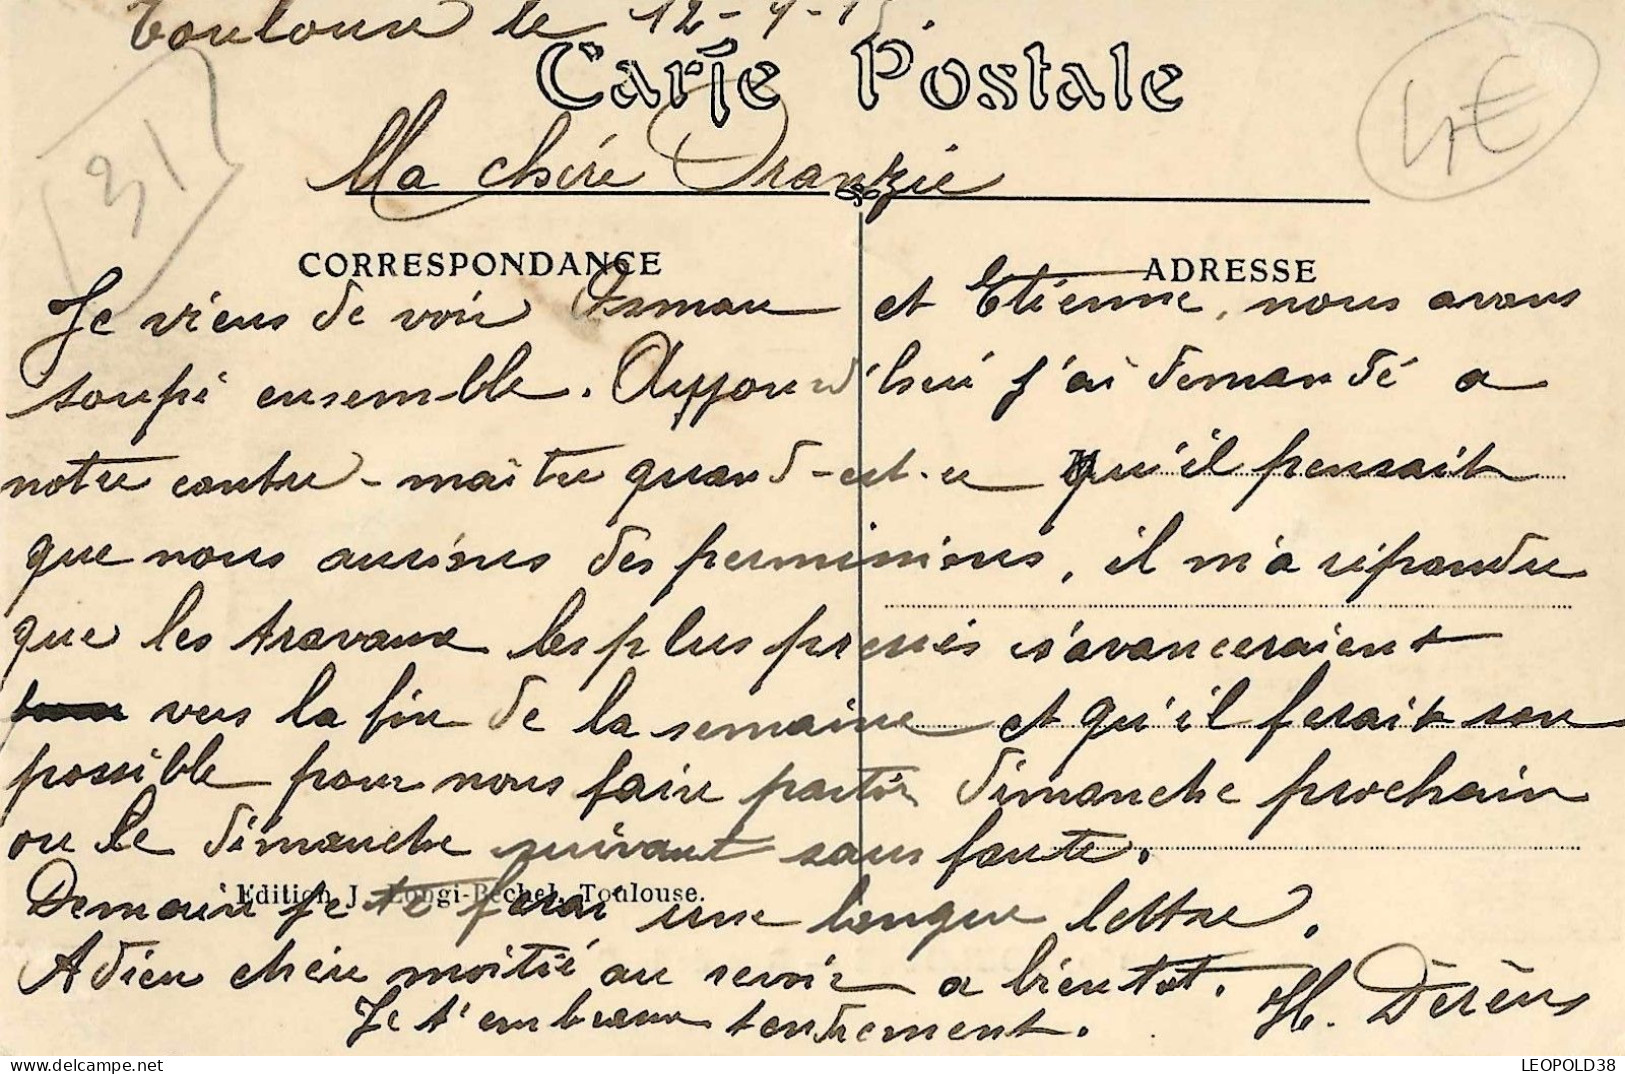 Toulouse le 12-9-15.
Carte Postale
31
4€
Ma chère Franzie
CORRESPONDANCE
ADRESSE
Je viens de voir et Etienne, nous avons
soupé ensemble. Aujourd'hui j'ai demandé a
notre contre-maître quand-est-ce qu'il pensait
que nous aurions des permissions, il m'a répondu
que les travaux les plus pressés s'avanceraient
vers la fin de la semaine et qu'il ferait son
possible pour nous faire partir dimanche prochain
ou le dimanche suivant sans faute.
Edition J. Longi-Béchel, Toulouse.
Demain je te ferai une longue lettre.
Adieu chère moitié au revoir a bientot. H. Dereus
Je t'embrasse tendrement.
LEOPOLD38